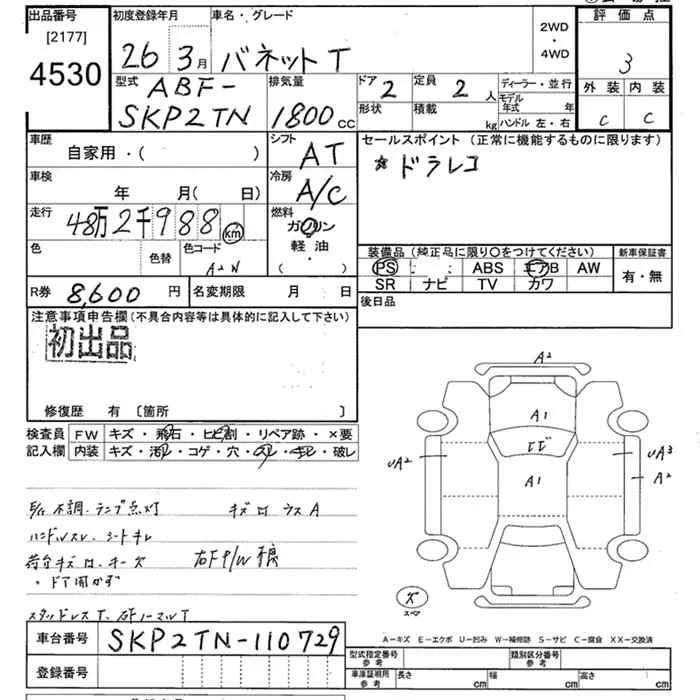 出品番号
[2177]
4530
初度登録年月
26年 3月
車名・グレード
バネットT
2WD
・
4WD
評価点
3
外装 内装
C C
型式
ABF-
SKP2TN
排気量
1800cc
ドア 2
定員 2人
形状
積載 kg
ディーラー・並行
モデル年式 年
ハンドル 左・右
車歴
自家用・( )
シフト
AT
セールスポイント (正常に機能するものに限ります)
☆ドラレコ
車検
年 月( 日)
冷房
A/C
走行
48万2千988 km
燃料
ガソリン
軽油・
( )
色
色替
色コード
A2W
装備品 (純正品に限り○をつけてください)
PS : : ABS エアB AW
SR ナビ TV カワ
新車保証書
有・無
R券 8,600円
名変期限 月 日
後日品
注意事項申告欄(不具合内容等は具体的に記入して下さい)
初出品
修復歴 有 〔箇所 〕
検査員記入欄
FW キズ・飛石・ヒビ割・リペア跡・×要
内装 キズ・汚レ・コゲ・穴・スレ・キレ・破レ
不調・ランプ点灯 キズロ ウスA
ハンドルスレ・シートキレ
荷台キズロ・キーズ 右F P/W
・ドア開かず
スタッドレスT
A2
A1
ヒビ
A1
UA2
UA3
A2
ズ
スペア
A－キズ E－エクボ U－凹み W－補修跡 S－サビ C－腐食 XX－交換済
車台番号 SKP2TN-110729
登録番号
型式指定番号
参考
類別区分番号
参考
車庫証明用
参考
長さ cm
幅 cm
高さ cm